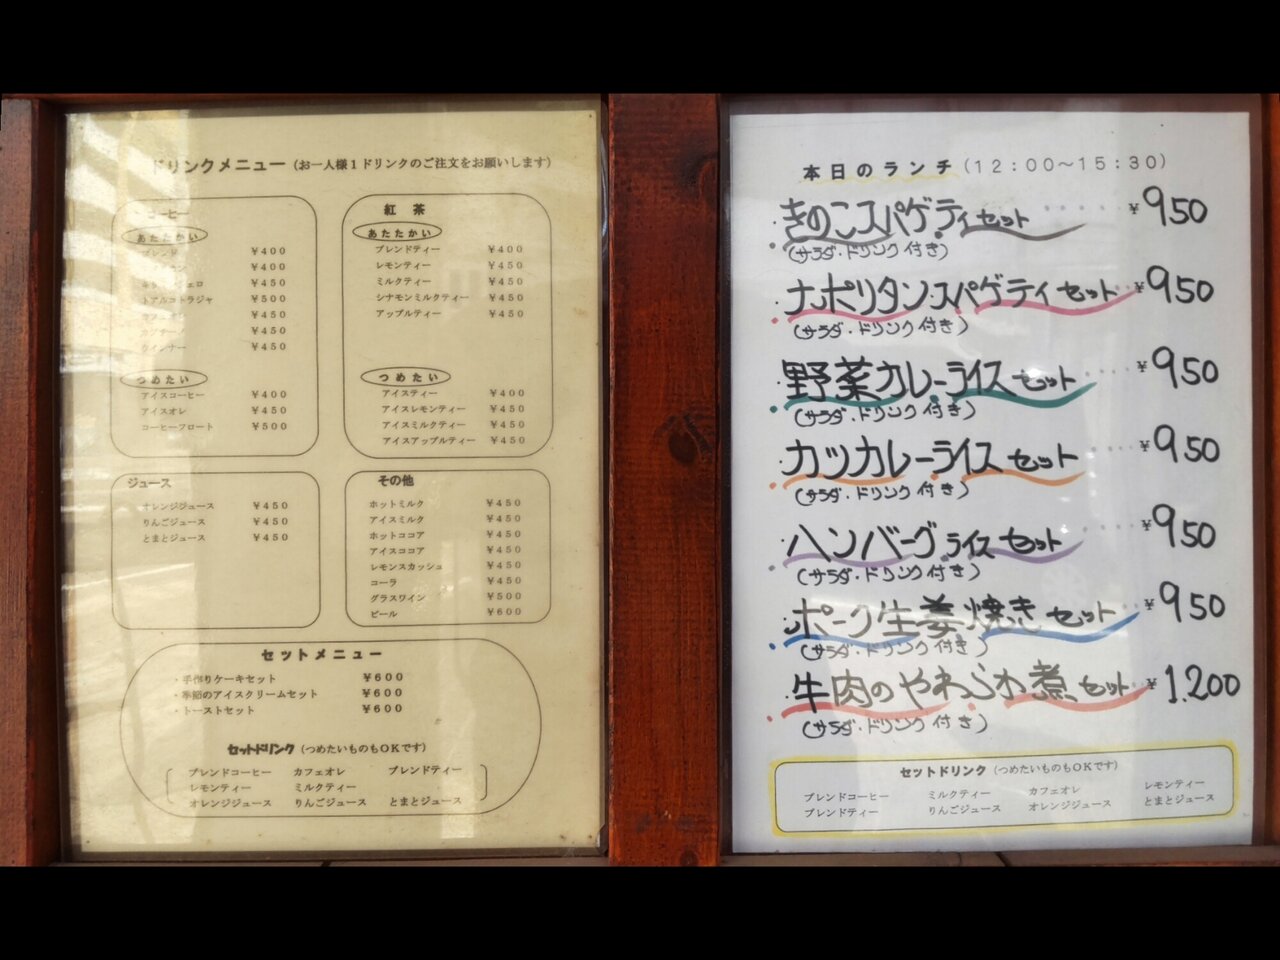 ドリンクメニュー（お一人様１ドリンクのご注文をお願いします）
コーヒー
あたたかい
ブレンド ￥400
￥400
￥450
トアルコトラジャ ￥500
カフェオレ ￥450
カプチーノ ￥450
ウインナー ￥450
つめたい
アイスコーヒー ￥400
アイスオレ ￥450
コーヒーフロート ￥500
紅茶
あたたかい
ブレンドティー ￥400
レモンティー ￥450
ミルクティー ￥450
シナモンミルクティー ￥450
アップルティー ￥450
つめたい
アイスティー ￥400
アイスレモンティー ￥450
アイスミルクティー ￥450
アイスアップルティー ￥450
ジュース
オレンジジュース ￥450
りんごジュース ￥450
とまとジュース ￥450
その他
ホットミルク ￥450
アイスミルク ￥450
ホットココア ￥450
アイスココア ￥450
レモンスカッシュ ￥450
コーラ ￥450
グラスワイン ￥500
ビール ￥600
セットメニュー
・手作りケーキセット ￥600
・季節のアイスクリームセット ￥600
・トーストセット ￥600
セットドリンク（つめたいものもOKです）
ブレンドコーヒー カフェオレ ブレンドティー
レモンティー ミルクティー
オレンジジュース りんごジュース とまとジュース
本日のランチ（12：00～15：30）
・きのこスパゲティセット ・・・・・・￥950
（サラダ・ドリンク付き）
・ナポリタンスパゲティセット ・￥950
（サラダ・ドリンク付き）
・野菜カレーライスセット ・・・・￥950
（サラダ・ドリンク付き）
・カツカレーライスセット ・・・・￥950
（サラダ・ドリンク付き）
・ハンバーグライスセット ・・・・￥950
（サラダ・ドリンク付き）
・ポーク生姜焼きセット ・・￥950
（サラダ・ドリンク付き）
・牛肉のやわらか煮セット ・￥1,200
（サラダ・ドリンク付き）
セットドリンク（つめたいものもOKです）
ブレンドコーヒー ミルクティー カフェオレ レモンティー
ブレンドティー りんごジュース オレンジジュース とまとジュース